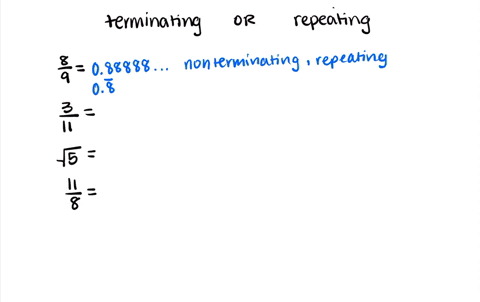 terminating OR repeating
8/9 = 0.88888... nonterminating, repeating
0.8̅
3/11 =
√5 =
11/8 =